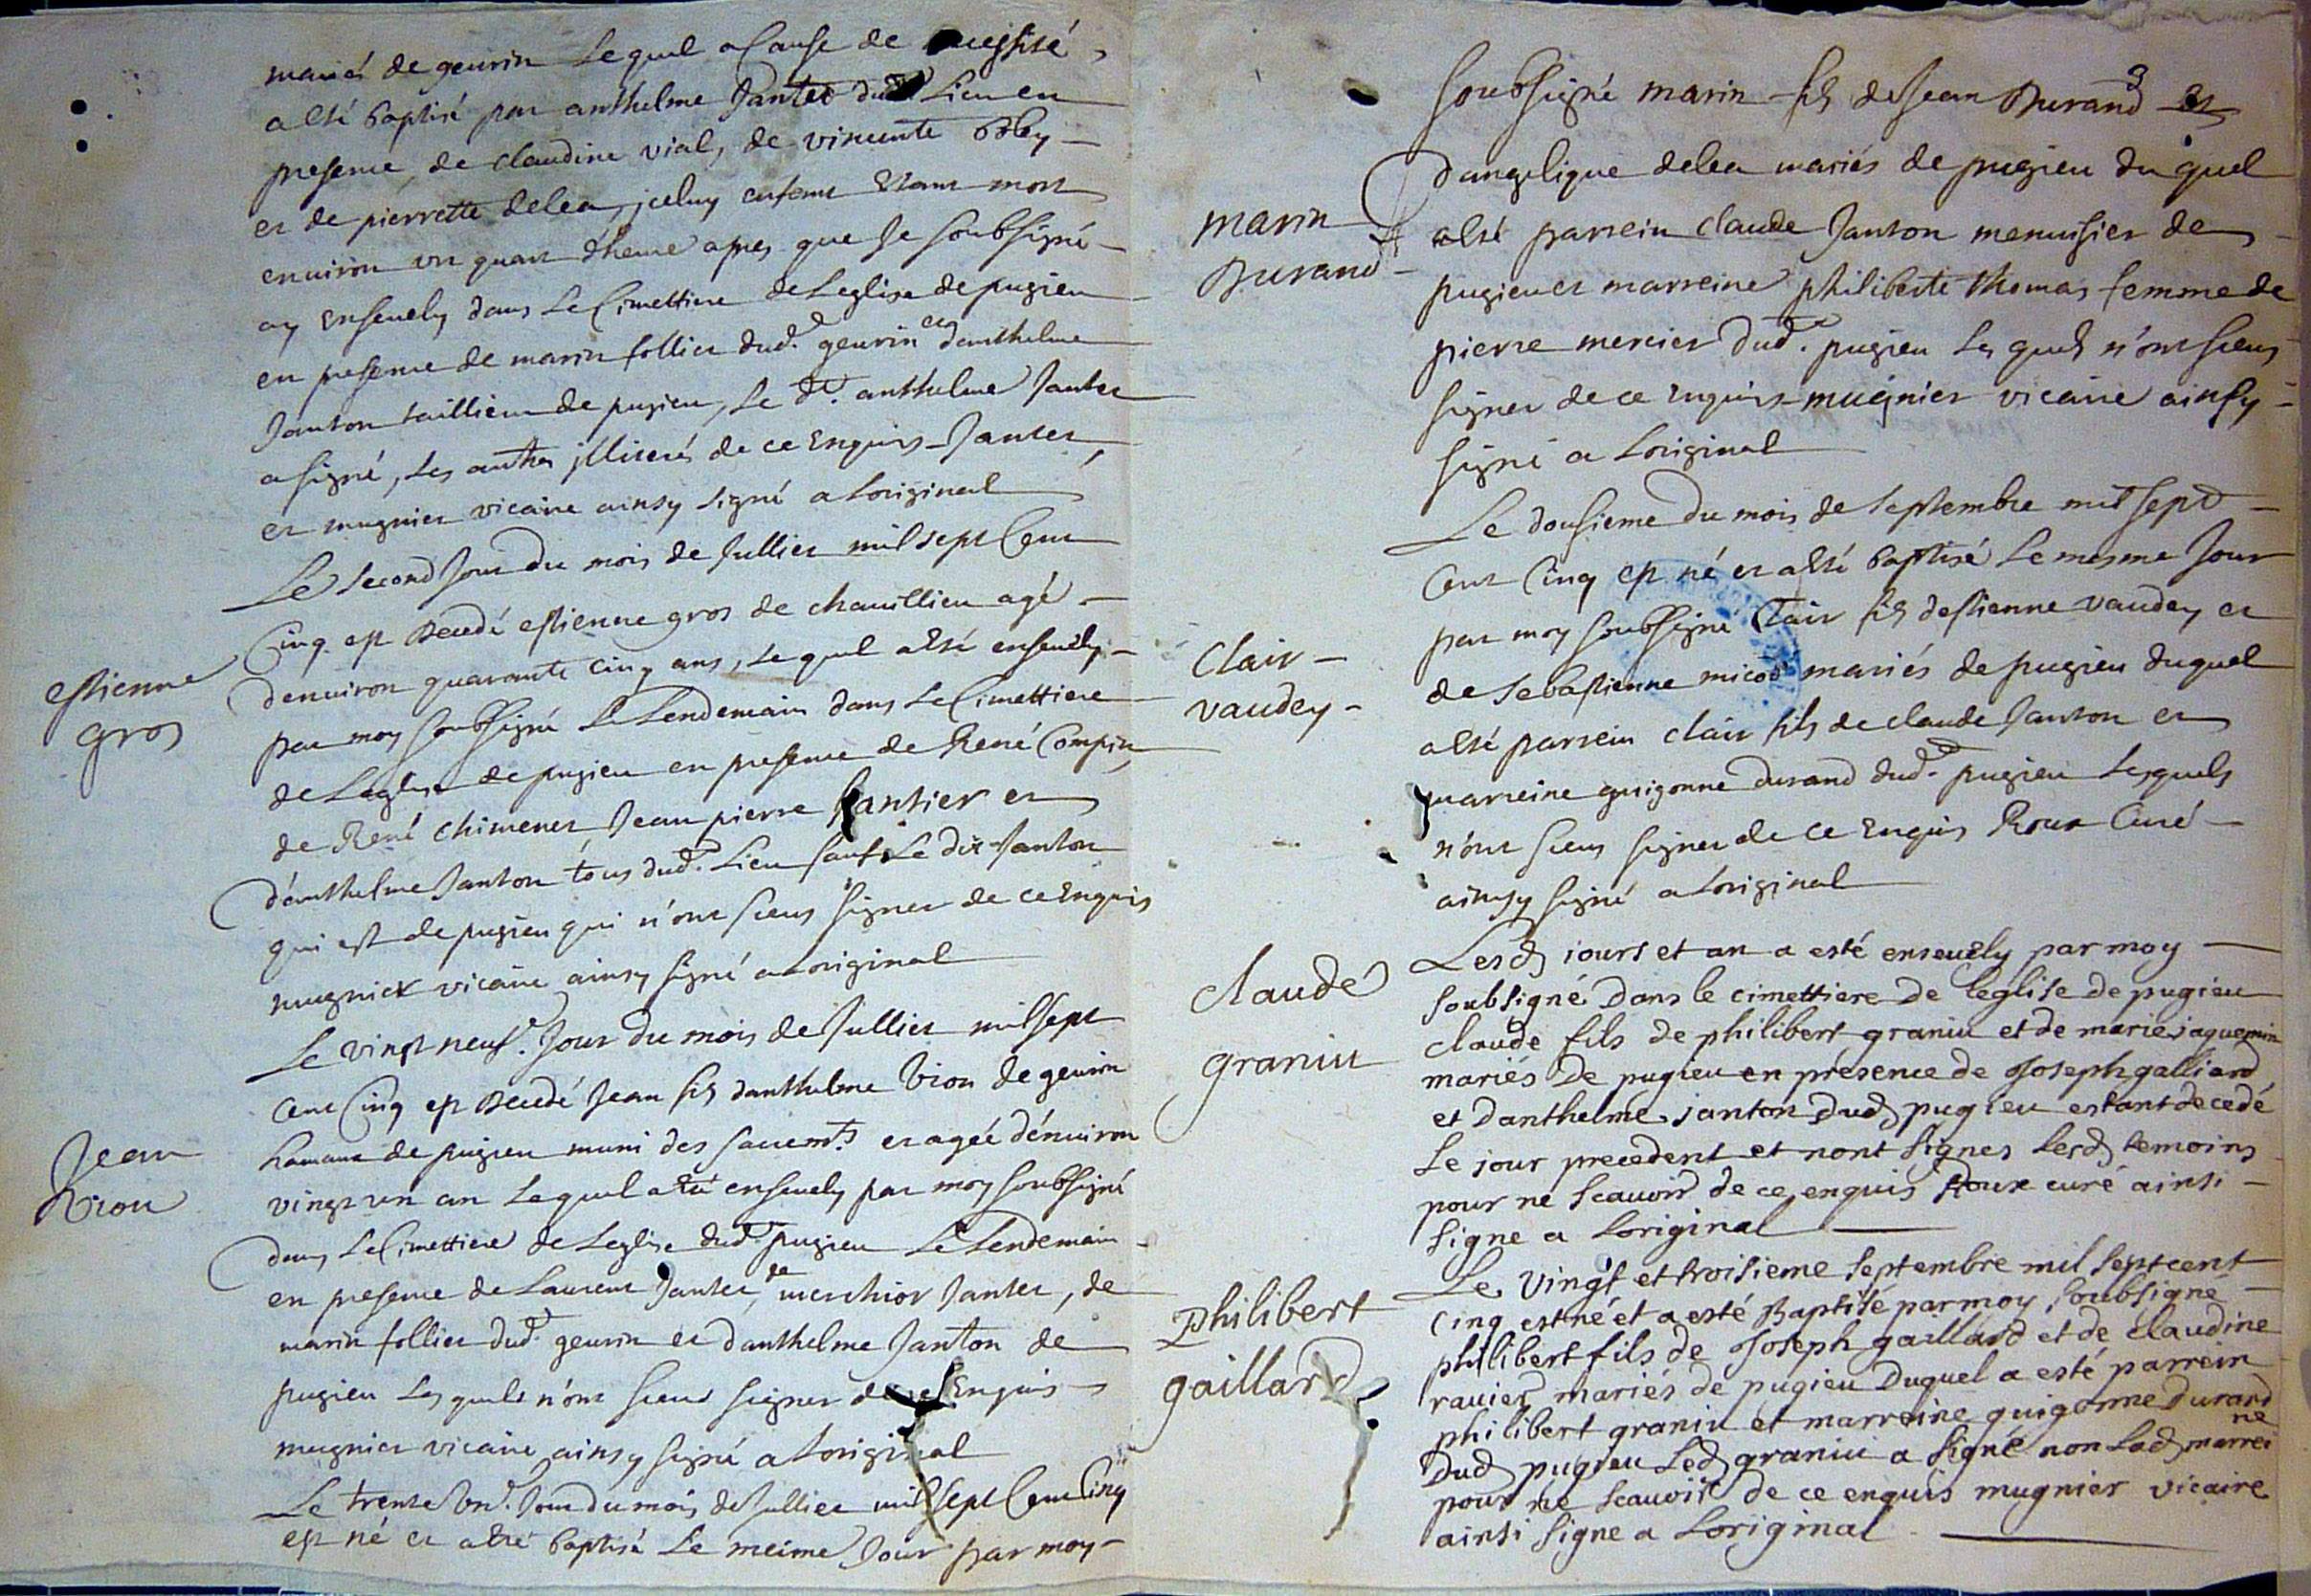 mariés de geurin Lequel a Cause de necessité
a esté baptisé par anthelme Jantet dud. Lieu en
presence de claudine vial, de vincente bbey
et de pierrette delea, iceluy enfant Estant mort
enuiron vn quart d'heure apres que Je soubsigné
ay Enseuely dans Le Cimettiere de Leglise de pugieu
en presence de marin follier dud. geurin et danthelme
Janton taillieur de pugieu, Le dt. anthelme Jantet
a signé, Les autres illiterés de ce Enquis Jantet,
et mugnier vicaire ainsy signé a Loriginal
Le second Jour du mois de Jullier mil sept Cent
Cinq est decedé estienne gros de chauillieu agé
denuiron quarante cinq ans, Lequel a esté enseuely
par moy soubsigné Le Lendemain dans Le Cimettiere
de Leglise de pugieu en presence de René Compin,
de René chimenet, Jean pierre gantier et
d'anthelme Janton tous dud. Lieu sauf Le dit Janton
qui est de pugieu qui n'ont sceus signer de ce Enquis
mugnier vicaire ainsy signé a Loriginal
estienne
gros
Le vingt neuf.e Jour du mois de Jullier mil sept
Cent Cinq est decedé Jean fils danthelme Viou de geurin
hameau de pugieu muni des sacremts. et agée d'enuiron
vingt un an Lequel a esté enseuely par moy soubsigné
dans Le Cimettiere de Leglise dud. pugieu Le Lendemain
en presence de Laurent Jantet, de merchior Jantet, de
marin follier dud. geurin et danthelme Janton de
pugieu Lesquels n'ont sceus signer de ce Enquis
mugnier vicaire ainsy signé a Loriginal
Jean
Viou
Le trente Vn.e Jour du mois de Jullier mil sept Cent Cinq
est né et a esté baptisé Le meime Jour par moy
3
soubsigné marin fils de Jean Durand et
dangelique delea mariés de pugieu du quel
a esté parrein claude Janton menuisier de
pugieu et marreine philiberte thomas femme de
pierre mercier dud. pugieu Les quels n'ont sceus
signer de ce enquis mugnier vicaire ainsy
signé a Loriginal
marin
Durand
Le dousieme du mois de septembre mil sept
Cent Cinq est né et a esté baptisé Le mesme Jour
par moy soubsigné Clair fils destienne vaudey et
de sebastienne micod mariés de pugieu duquel
a esté parrein clair fils de claude Janton et
marreine guigonne durand dud. pugieu Lesquels
n'ont sceus signer de ce Enquis Roux Curé
ainsy signé a Loriginal
Clair
vaudey
Lesd jours et an a esté enseuely par moy
soubsigné Dans le cimettiere de leglise de pugieu
claude fils de philibert graniu et de marie jaquemin
mariés De pugieu en présence de Joseph galliard
et Danthelme janton Dud pugieu estant decedé
Le jour precedent et nont signes Lesd temoins
pour ne scauoir de ce enquis Roux curé ainsi
signe a Loriginal
claude
graniu
Le vingt et troisieme septembre mil sept cent
Cinq est né et a esté Baptisé par moy soubsigné
philibert fils de Joseph gaillard et de claudine
rauier mariés de pugieu Duquel a esté parrein
philibert graniu et marreine guigonne Durand
Dud pugieu Led graniu a signé non Lad marreine
pour ne scauoir de ce enquis mugnier vicaire
ainsi signe a Loriginal
Philibert
gaillard